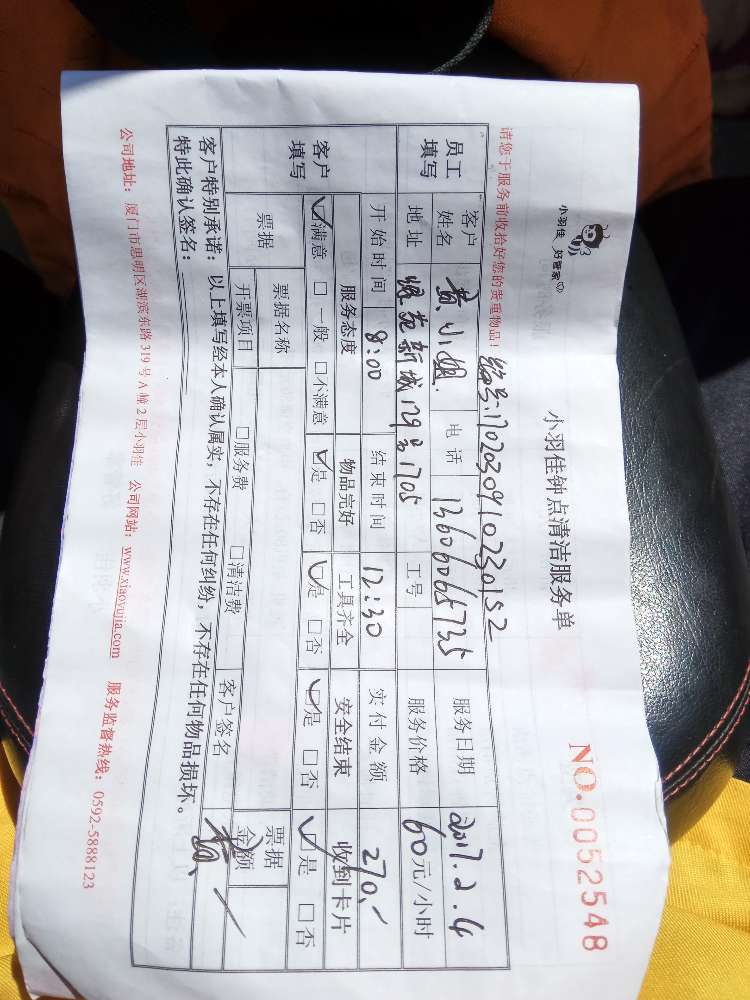 小羽佳 好管家
小羽佳钟点清洁服务单
NO.0052548
请您于服务前收拾好您的贵重物品!
编号:1702030910230152
员工填写 客户姓名 黄小姐 电话 13606065735 服务日期 2017.2.4
地址 新城129号1705 工号 服务价格 60元/小时
客户填写 开始时间 8:00 结束时间 12:30 实付金额 270.-
服务态度 物品完好 工具齐全 安全结束 收到卡片
☑满意 □一般 □不满意 ☑是 □否 ☑是 □否 ☑是 □否 ☑是 □否
票据 票据名称 客户签名 票据金额
开票项目 □服务费 □清洁费
客户特别承诺:以上填写经本人确认属实,不存在任何纠纷,不存在任何物品损坏。
特此确认签名: 黄
公司地址:厦门市思明区湖滨东路319号A幢2层小羽佳 公司网站:www.xiaoyujia.com 服务监督热线:0592-5888123